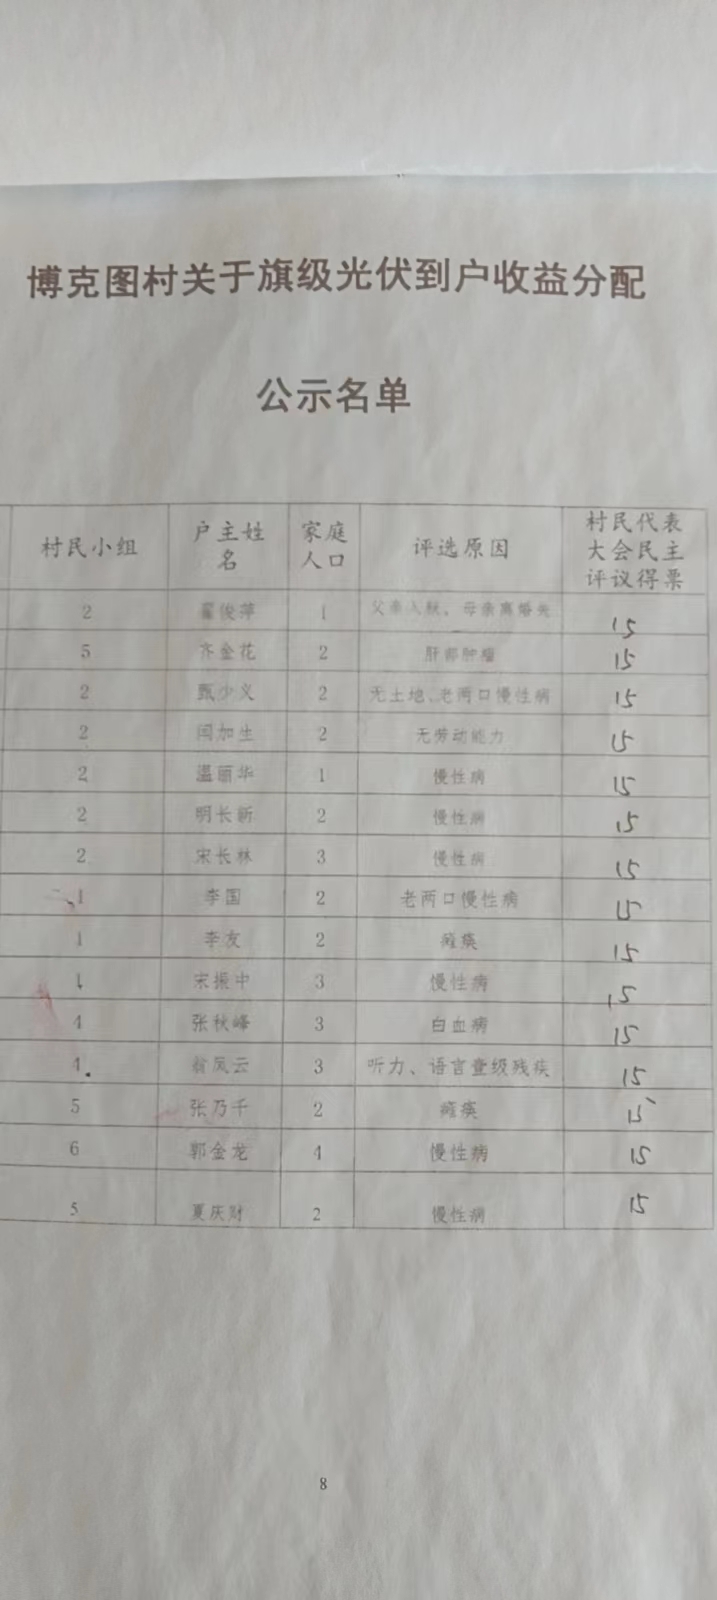 博克图村关于旗级光伏到户收益分配
公示名单
村民小组 户主姓名 家庭人口 评选原因 村民代表大会民主评议得票
2 翟俊萍 1 父亲入狱、母亲离婚 15
5 齐金花 2 肝部肿瘤 15
2 甄少义 2 无土地、老两口慢性病 15
2 闫加生 2 无劳动能力 15
2 温丽华 1 慢性病 15
2 明长新 2 慢性病 15
2 宋长林 3 慢性病 15
1 李国 2 老两口慢性病 15
1 李友 2 瘫痪 15
1 宋振中 3 慢性病 15
4 张秋峰 3 白血病 15
4 翁凤云 3 听力、语言壹级残疾 15
5 张乃千 2 瘫痪 15
6 郭金龙 4 慢性病 15
5 夏庆财 2 慢性病 15
8